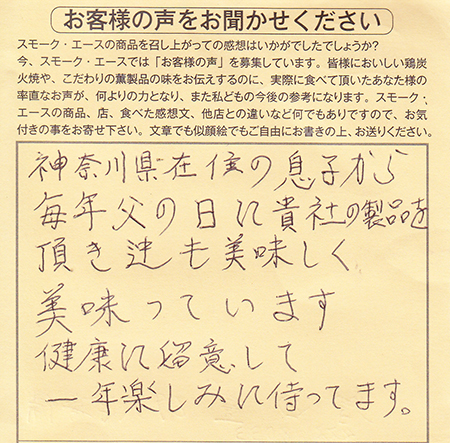 お客様の声をお聞かせください
スモーク・エースの商品を召し上がっての感想はいかがでしたでしょうか?
今、スモーク・エースでは「お客様の声」を募集しています。皆様においしい鶏炭
火焼や、こだわりの薫製品の味をお伝えするのに、実際に食べて頂いたあなた様の
率直なお声が、何よりの力となり、また私どもの今後の参考になります。スモーク・
エースの商品、店、食べた感想文、他店との違いなど何でもありですので、お気
付きの事をお寄せ下さい。文章でも似顔絵でもご自由にお書きの上、お送りください。
神奈川県在住の息子から
毎年父の日に貴社の製品を
頂き も美味しく
美味っています
健康に留意して
一年楽しみに待ってます。